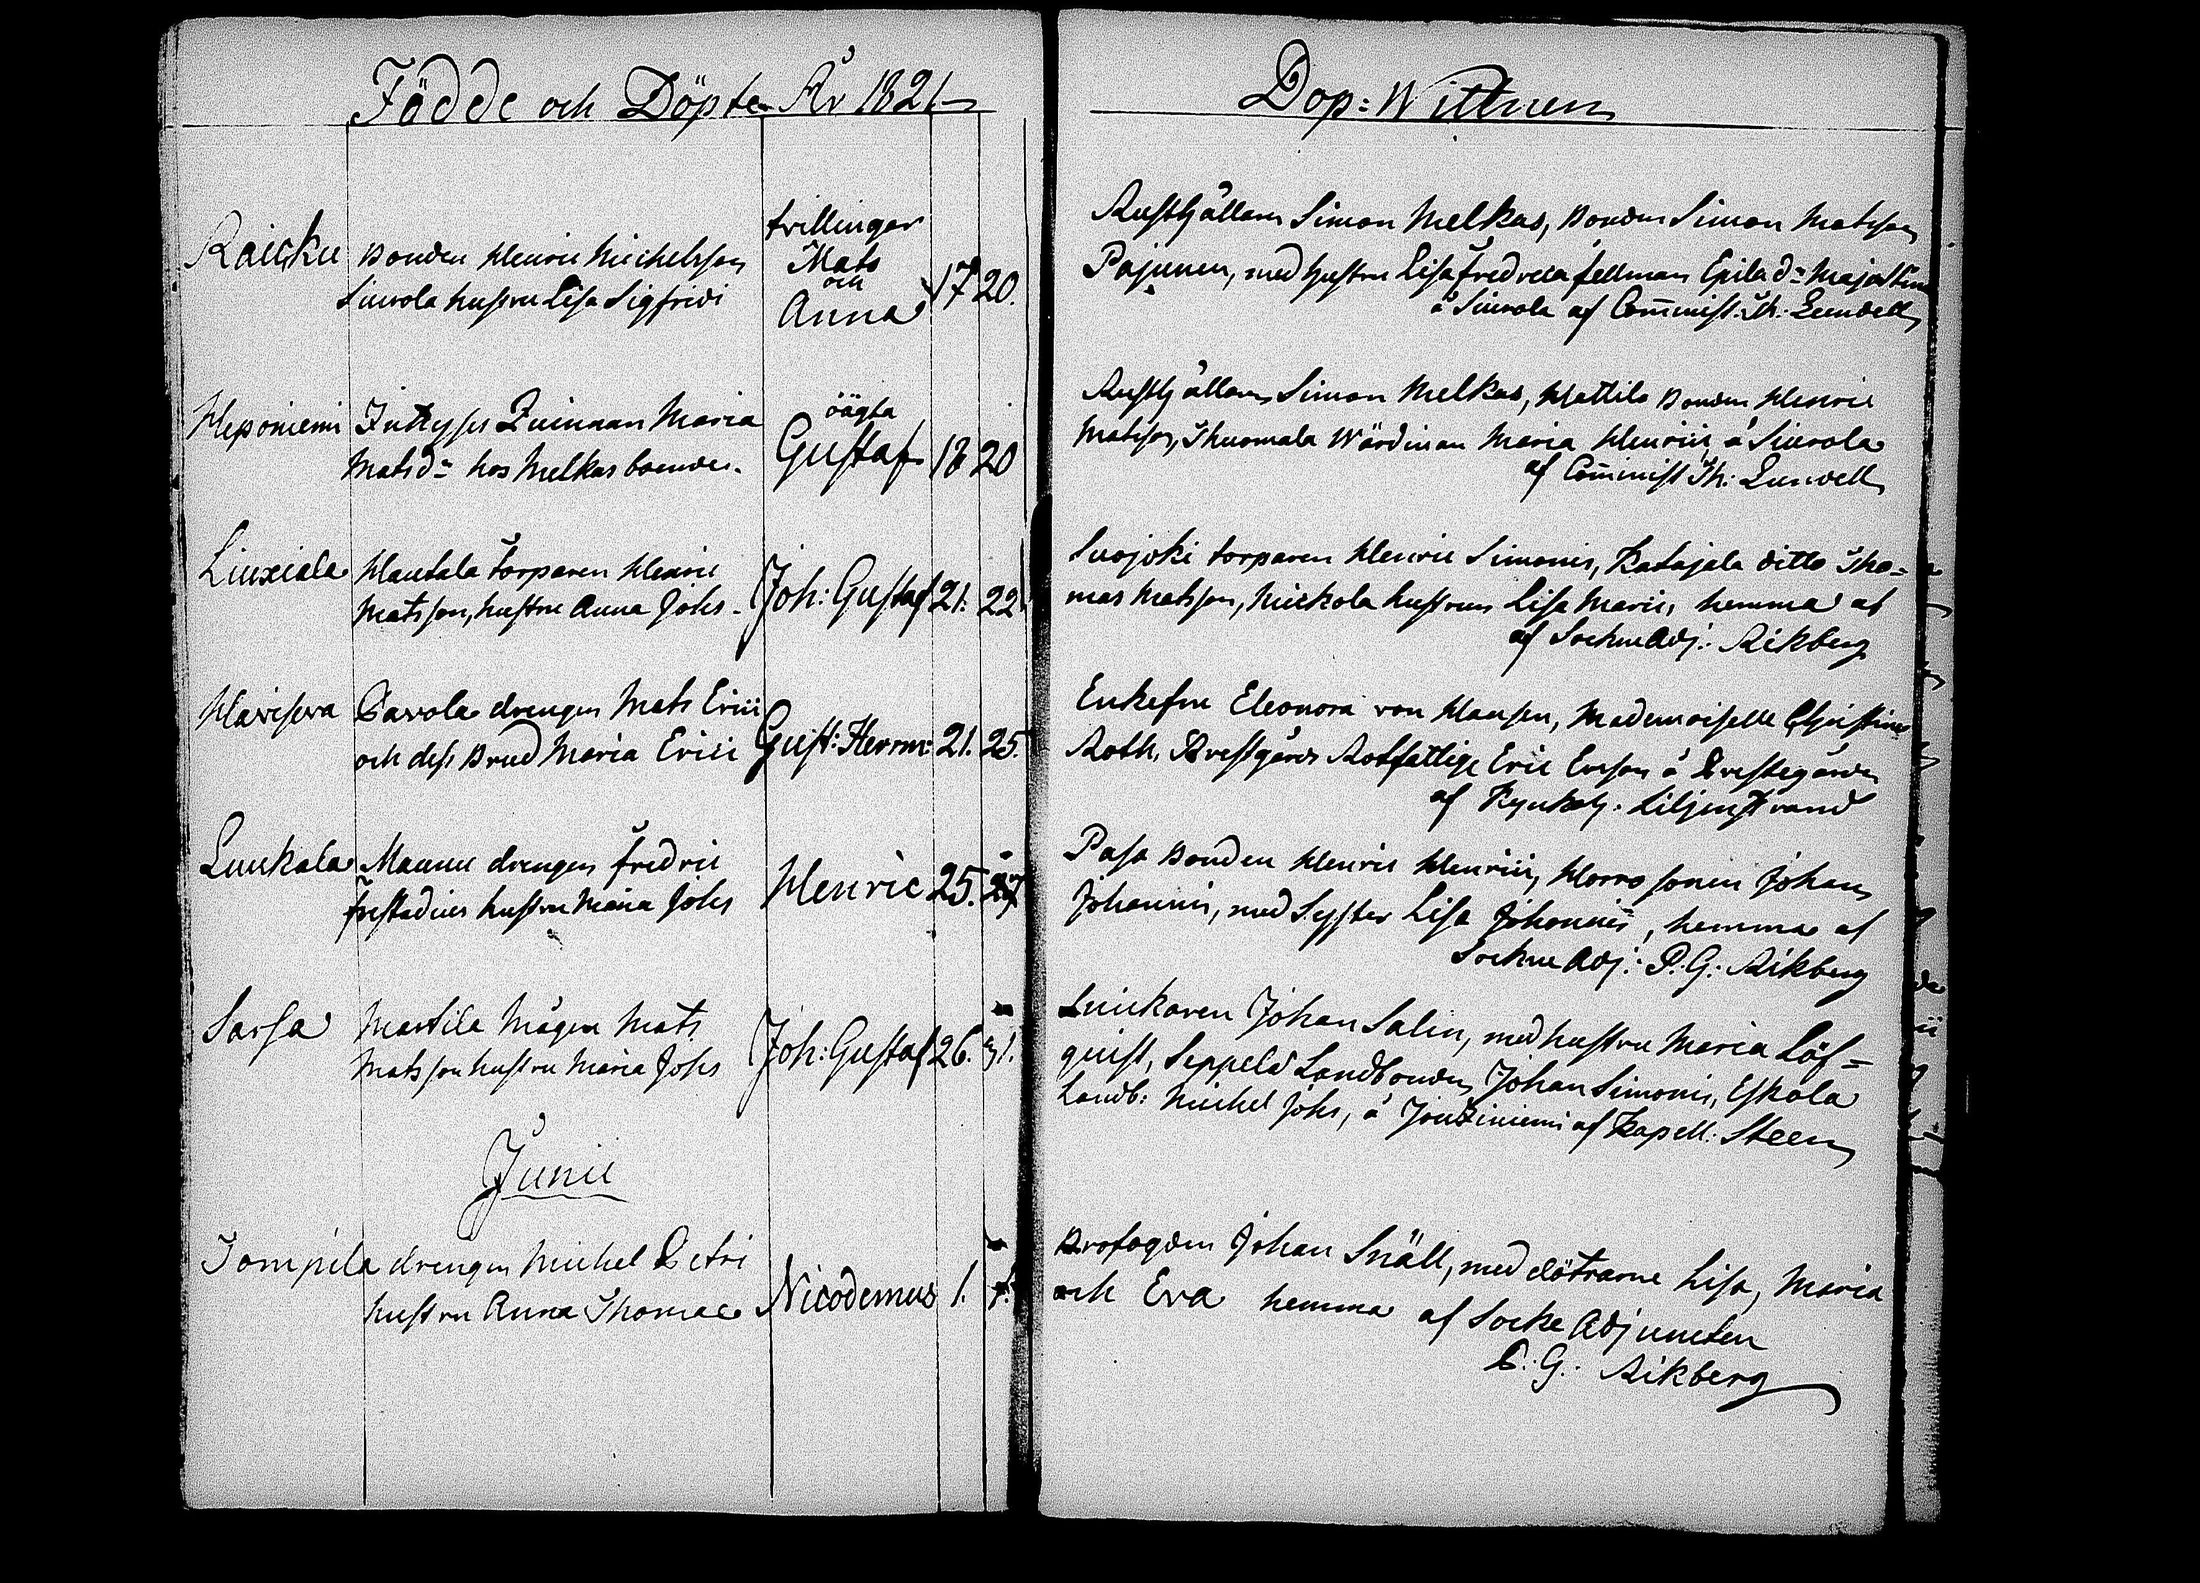 Födde och Döpte År 1821
Dop: Wittnen
Raicku
Bonden Henric Michelsson
Siurola hustru Lisa Sigfridi
trillingar
Mats
och
Anna
17 20.
Rusthållaren Simon Melkas, Bonden Simon Matsson
Pajunen, med hustru Lisa Fredrica Fellman Epila d:n Maja Stina
å Siurola af Com̅inist: Th: Lundell
Heponiemi
Inhyses Quinnan Maria
Mats d:r hos Melkas bonde.
oägta
Gustaf
18 20
Rusthållaren Simon Melkas, Mattila Bonden Henric
Matsson, Thuomala Wärdinnan Maria Henrici, å Siurola
af Com̅inist Th: Lundell
Liuxiala
Hautala torparen Henric
Matsson, hustru Anna Johs
Joh: Gustaf
21. 22
Suojoki torparen Henric Simonis, Katajala ditto Tho=
mas Matsson, Nickola hustrun Lisa Marii, hemma af
af Sockne Adj: Aikberg
Havisova
Pavola drengen Mats Erici
och dess Brud Maria Erici
Gust: Herm:
21. 25.
Enkefru Eleonora von Hausen, Mademoiselle Christina
Roth, Prestgårds Rotfattige Eric Ersson å Prestegården
af Kyrkoh: Liljenstrand
Luukala
Maunu drengen Fredric
Frestadius hustru Maria Johs
Henric
25. 27
Pasa Bonden Henric Henrici, Horro sonen Johan
Johannis, med Syster Lisa Johannis, hemma af
Sockne Adj: P. G. Aikberg
Sarsa
Martila Mågen Mats
Matsson hustru Maria Johs
Joh: Gustaf
26. 31.
Snickaren Johan Salin, med hustru Maria Löf=
quist, Seppelä Landbonden Johan Simonis, Eskola
Landb: Michel Johs, å Joutziniemi af Kapell: Steen
Junii
Tompila drengen Michel Petri
hustru Anna Thomae
Nicodemus
1.
Brofogden Johan Snäll, med dötrarne Lisa, Maria
och Eva hemma af Socke Adjuncten
P. G. Aikberg